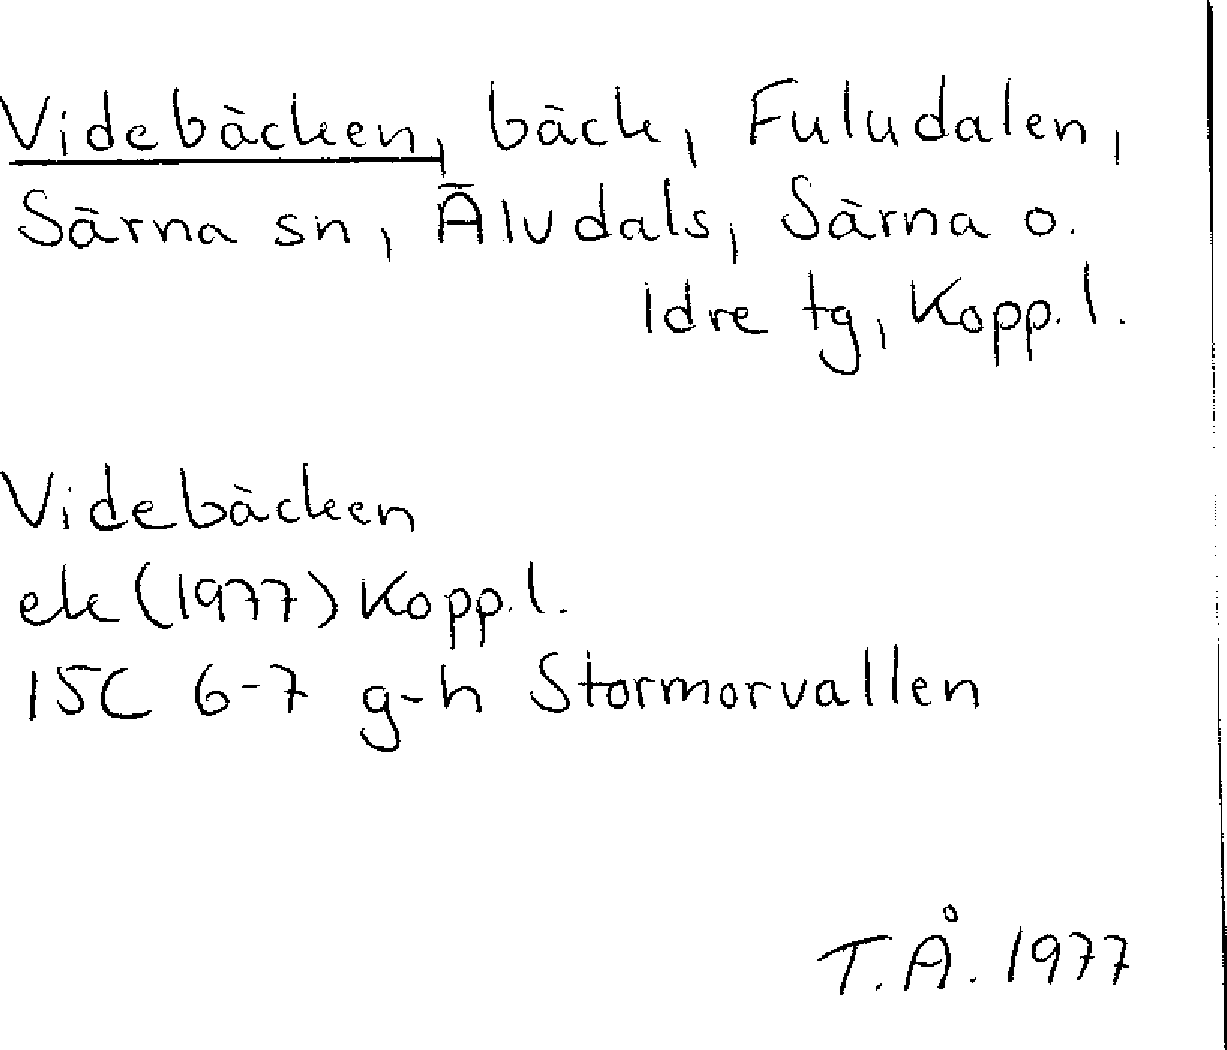 Videbäcken, bäck, Fuludalen,
Särna sn, Älvdals, Särna o.
Idre tg, Kopp. l.
Videbäcken
ek (1977) Kopp. l.
15C 6-7 g-h Stormorvallen
T.Å. 1977